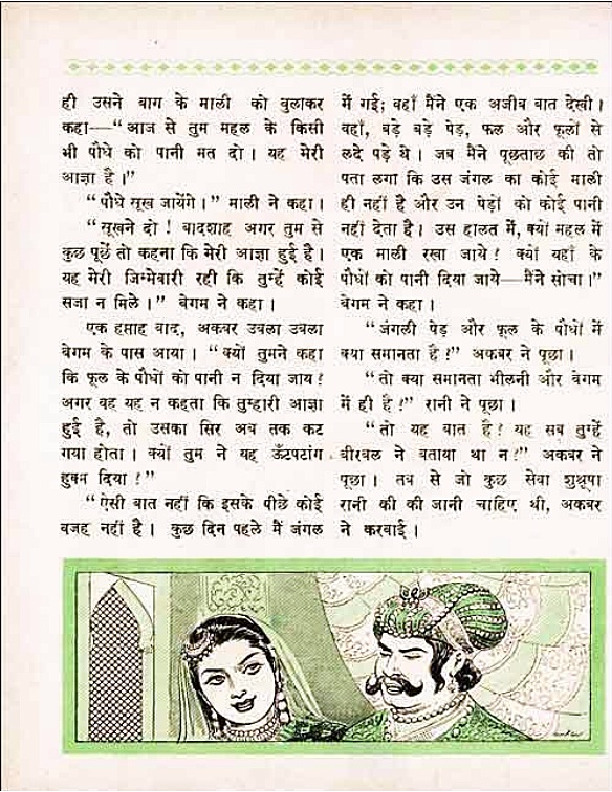 ही उसने बाग के माली को बुलाकर
कहा—“आज से तुम महल के किसी
भी पौधे को पानी मत दो। यह मेरी
आज्ञा है।”
“पौधे सूख जायेंगे।” माली ने कहा।
“सूखने दो! बादशाह अगर तुम से
कुछ पूछें तो कहना कि मेरी आज्ञा हुई है।
यह मेरी जिम्मेवारी रही कि तुम्हें कोई
सजा न मिले।” बेगम ने कहा।
एक हफ़्ताह बाद, अकबर उबला उबला
बेगम के पास आया। “क्यों तुमने कहा
कि फूल के पौधों को पानी न दिया जाय?
अगर वह यह न कहता कि तुम्हारी आज्ञा
हुई है, तो उसका सिर अब तक कट
गया होता। क्यों तुम ने यह ऊँटपटांग
हुक्म दिया?”
“ऐसी बात नहीं कि इसके पीछे कोई
वजह नहीं है। कुछ दिन पहले मैं जंगल
में गई; वहाँ मैंने एक अजीब बात देखी।
वहाँ, बड़े बड़े पेड़, फल और फूलों से
लदे पड़े थे। जब मैंने पूछताछ की तो
पता लगा कि उस जंगल का कोई माली
ही नहीं है और उन पेड़ों को कोई पानी
नहीं देता है। उस हालत में, क्यों महल में
एक माली रखा जाये? क्यों यहाँ के
पौधों को पानी दिया जाये—मैंने सोचा।”
बेगम ने कहा।
“जंगली पेड़ और फूल के पौधों में
क्या समानता है?” अकबर ने पूछा।
“तो क्या समानता भीलनी और बेगम
में ही है?” रानी ने पूछा।
“तो यह बात है? यह सब तुम्हें
बीरबल ने बताया था न?” अकबर ने
पूछा। तब से जो कुछ सेवा शुश्रूषा
रानी की की जानी चाहिए थी, अकबर
ने करवाई।